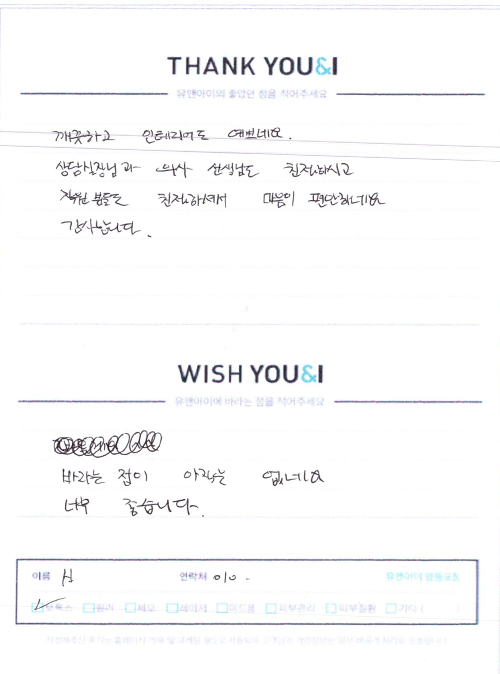 THANK YOU&I
유앤아이의 좋았던 점을 적어주세요
깨끗하고 인테리어도 예쁘네요.
상담실장님과 의사 선생님도 친절하시고
직원 분들도 친절하셔서 마음이 편안하네요
감사합니다.
WISH YOU&I
유앤아이에 바라는 점을 적어주세요
바라는 점이 아직은 없네요
너무 좋습니다.
이름 연락처 010 - 유앤아이
보톡스 필러 제모 레이저 더마톡 피부관리 피부질환 기타 ( )